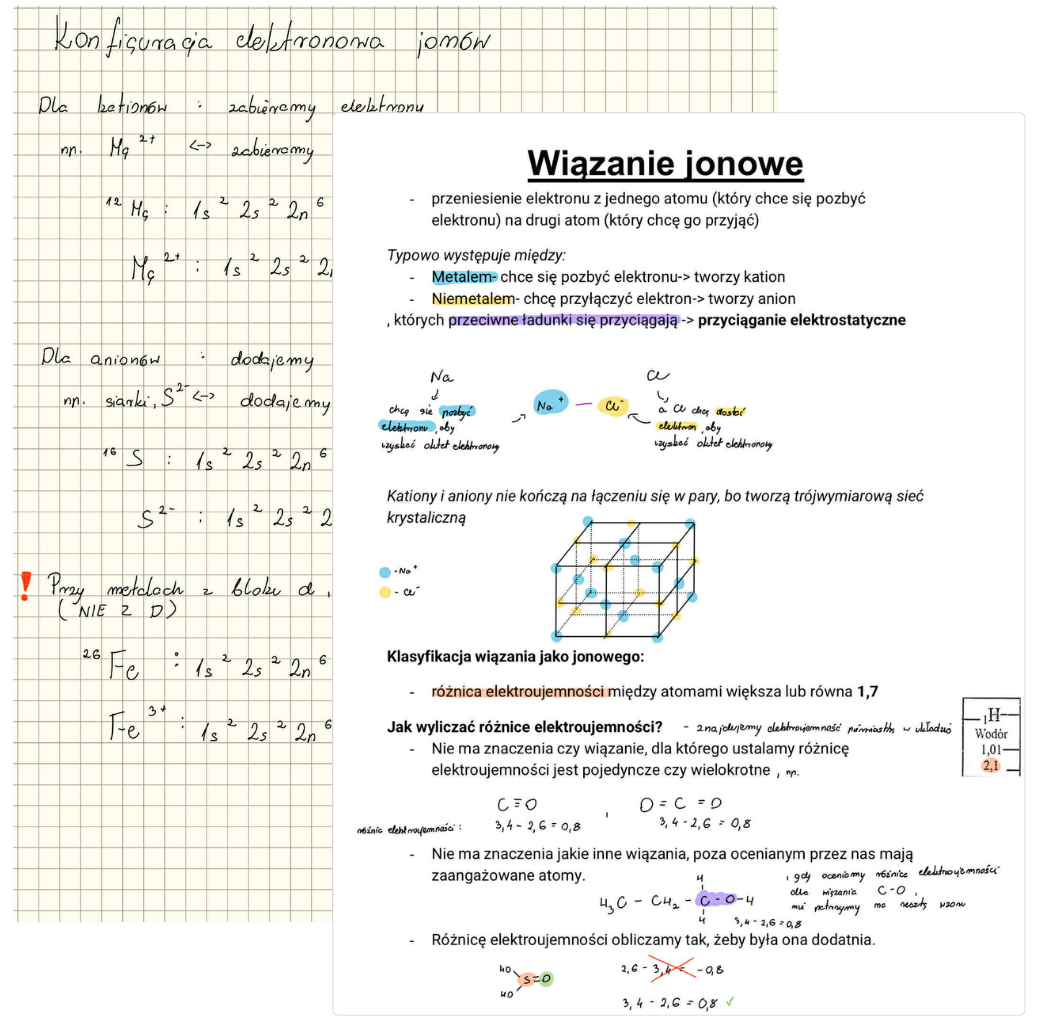 Konfiguracja elektronowa jonów
Dla kationów : zabieramy elektrony
np. Mg²⁺ <-> zabieramy
¹² Mg : 1s² 2s² 2p⁶
Mg²⁺ : 1s² 2s² 2
Dla anionów : dodajemy
np. siarki, S²⁻ <-> dodajemy
¹⁶ S : 1s² 2s² 2p⁶
S²⁻ : 1s² 2s² 2
! Przy metalach z bloku d,
(NIE Z D)
²⁶ Fe : 1s² 2s² 2p⁶
Fe³⁺ : 1s² 2s² 2p⁶
Wiązanie jonowe
- przeniesienie elektronu z jednego atomu (który chce się pozbyć
elektronu) na drugi atom (który chcę go przyjąć)
Typowo występuje między:
- Metalem- chce się pozbyć elektronu-> tworzy kation
- Niemetalem- chcę przyłączyć elektron-> tworzy anion
, których przeciwne ładunki się przyciągają -> przyciąganie elektrostatyczne
Na
chcę się pozbyć
elektronu, aby
uzyskać oktet elektronowy
Na⁺ — Cl⁻
Cl
a Cl chcę dostać
elektron, aby
uzyskać oktet elektronowy
Kationy i aniony nie kończą na łączeniu się w pary, bo tworzą trójwymiarową sieć
krystaliczną
- Na⁺
- Cl⁻
Klasyfikacja wiązania jako jonowego:
- różnica elektroujemności między atomami większa lub równa 1,7
Jak wyliczać różnice elektroujemności? - znajdujemy elektroujemność pierwiastka w układzie
₁H
Wodór
1,01
2,1
- Nie ma znaczenia czy wiązanie, dla którego ustalamy różnicę
elektroujemności jest pojedyncze czy wielokrotne , np.
C≡O , O=C=O
różnica elektroujemności: 3,4-2,6=0,8 3,4-2,6=0,8
- Nie ma znaczenia jakie inne wiązania, poza ocenianym przez nas mają
zaangażowane atomy.
, gdy oceniamy różnicę elektroujemności
dla wiązania C-O,
nie patrzymy na resztę wzoru
H
H₃C - CH₂ - C - O - H
H
3,4-2,6=0,8
- Różnicę elektroujemności obliczamy tak, żeby była ona dodatnia.
HO
S=O
HO
2,6 - 3,4 = -0,8
3,4 - 2,6 = 0,8 ✓